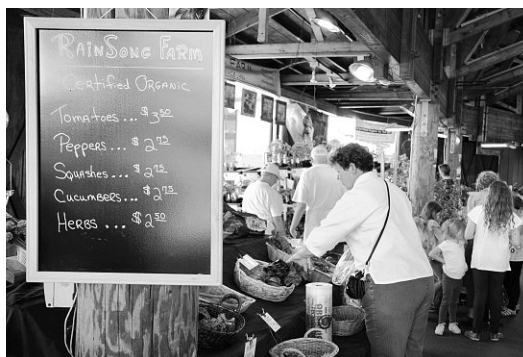 RainSong Farm
Certified Organic
Tomatoes ... $3.50
Peppers ... $2.75
Squashes ... $2.75
Cucumbers ... $2.75
Herbs ... $2.50